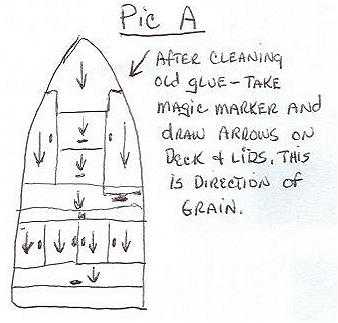 Pic A
AFTER CLEANING
OLD GLUE - TAKE
MAGIC MARKER AND
DRAW ARROWS ON
DECK & LIDS. THIS
IS DIRECTION OF
GRAIN.